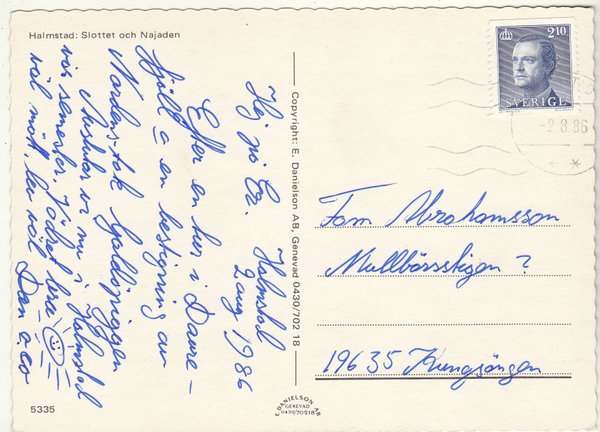 Halmstad: Slottet och Najaden
Hej på Er.
Halmstad
2 aug 1986
Efter en tur i Dovre-
fjäll o en bestigning av
Nordens tak Galdhöpiggen
avslutar vi nu i Halmstad
vår semester. Vädret bra
väl mött, lev väl
Dan o co
5335
Copyright: E. Danielson AB, Genevad 0430/702 18
E. DANIELSON AB
GENEVAD
0430/70218
2.10
SVERIGE
-2.8.86
Fam Abrahamsson
Mullbärsstigen 7
196 35 Kungsängen